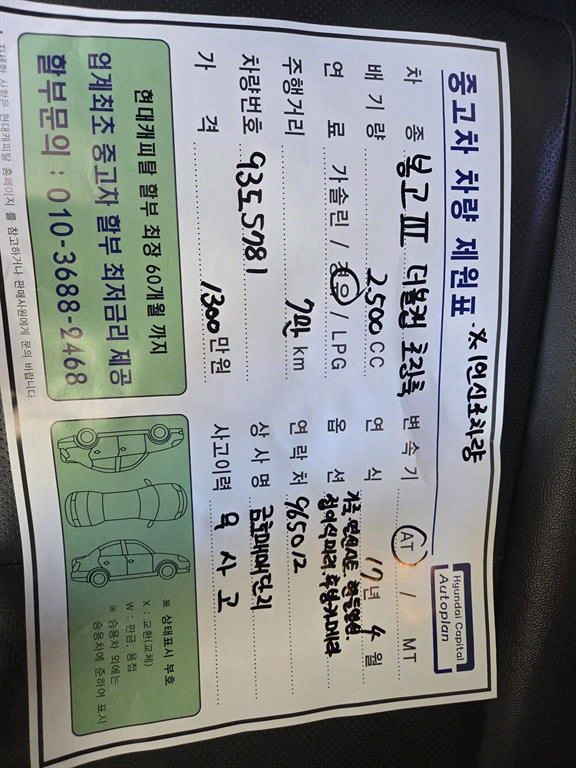 중고차 차량 제원표 ※ 1인신조차량
Hyundai Capital
Autoplan
차 종 봉고 III 더블캡 초장축 변속기 AT / MT
배기량 2,500 CC 연 식 17년 4월
연 료 가솔린 / 경유 / LPG 옵 션
주행거리 7만 km 연락처 965012
차량번호 93도5781 상사명
가 격 1300만원 사고이력 무사고
현대캐피탈 할부 최장 60개월 까지
업계최초 중고차 할부 최저금리 제공
할부문의 : 010-3688-2468
※ 상태표시 부호
X : 교환(교체)
W : 판금, 용접
※ 승용차 외에는
승용차에 준하여 표시
자세한 사항은 현대캐피탈 홈페이지를 참고하거나 판매사원에게 문의 바랍니다.